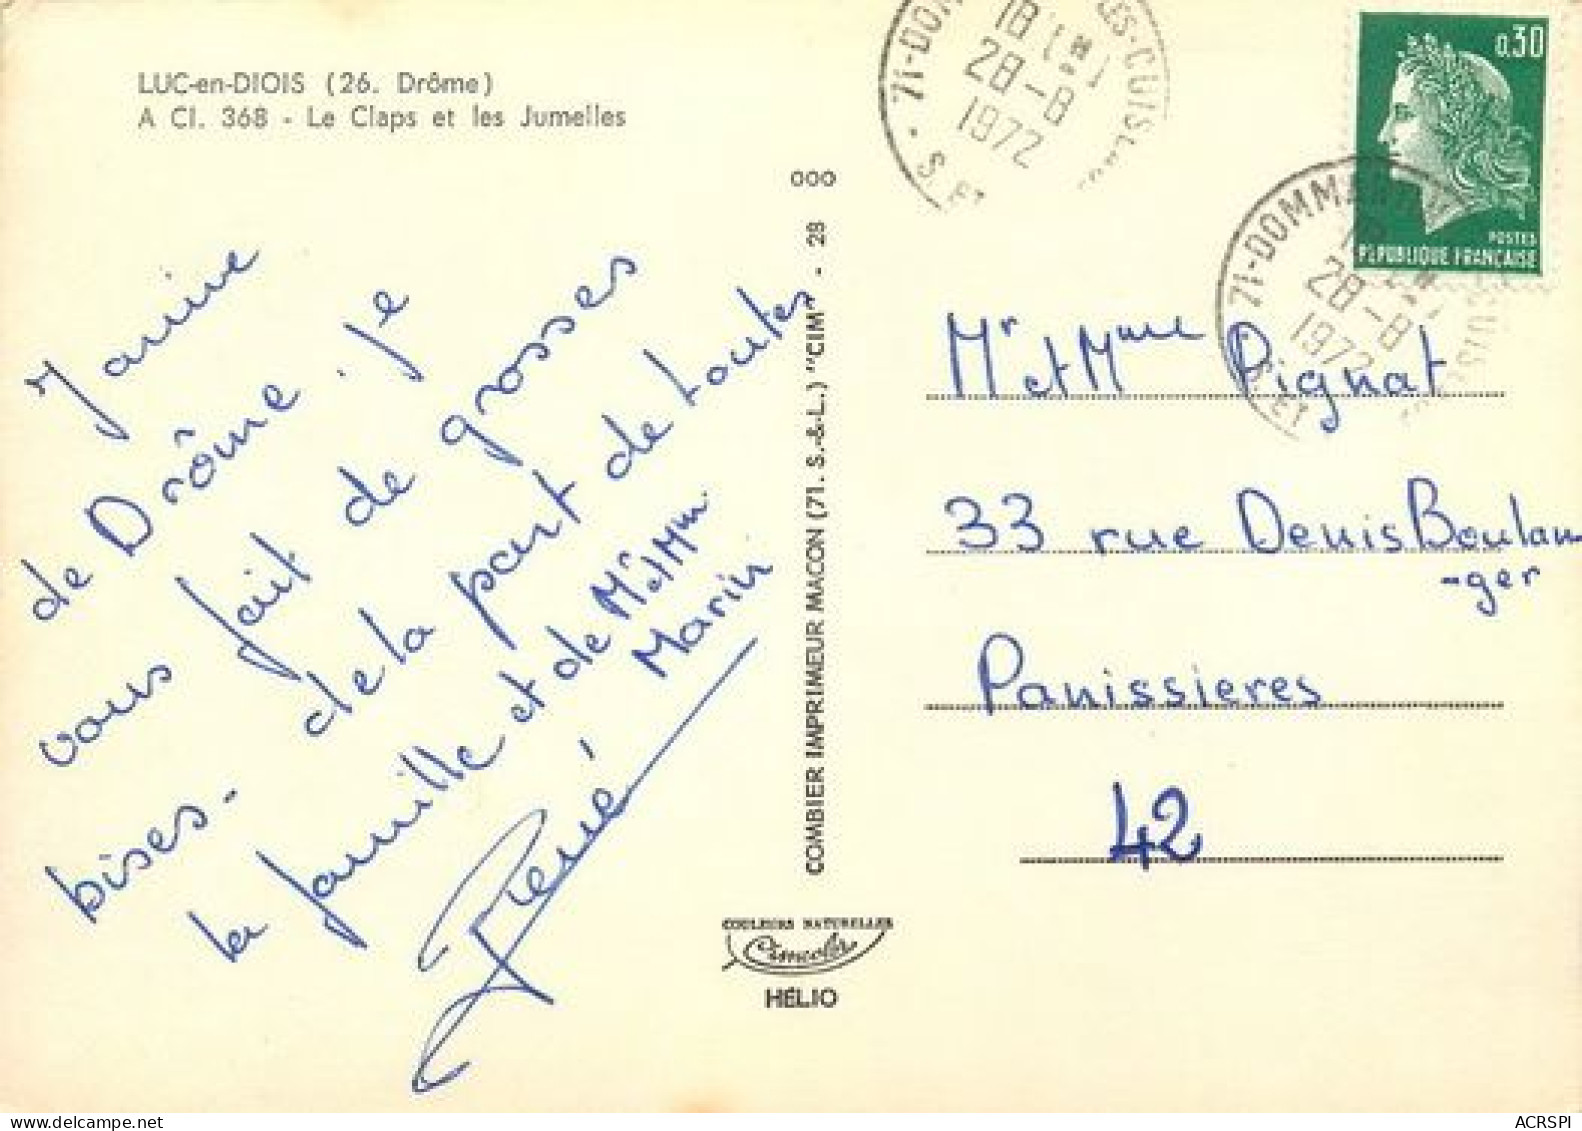 LUC-en-DIOIS (26. Drôme)
A Cl. 368 - Le Claps et les Jumelles
000
COMBIER IMPRIMEUR MACON (71. S.-&-L.) "CIM" - 28
COULEURS NATURELLES
Cimcolor
HÉLIO
de Drôme. je
vous fait de grosses
bises. de la part de toutes
la famille et de Mr et Mme
Marin
René
71-DOM LES-CUISEAUX
18H
28-8
1972
S. ET
0,30
POSTES
RÉPUBLIQUE FRANÇAISE
71-DOMMARTIN
28-8
1972
S. ET
Mr et Mme Pignat
33 rue Denis Boulan
-ger
Panissieres
42
ACRSPI